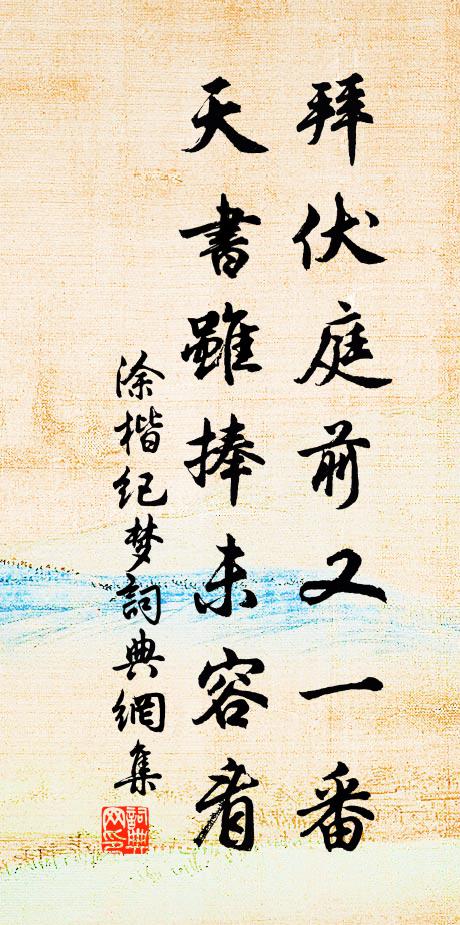 拜伏庭前又一番
天書雖捧未容看
涂楷纪梦詞典網集
詞典网印